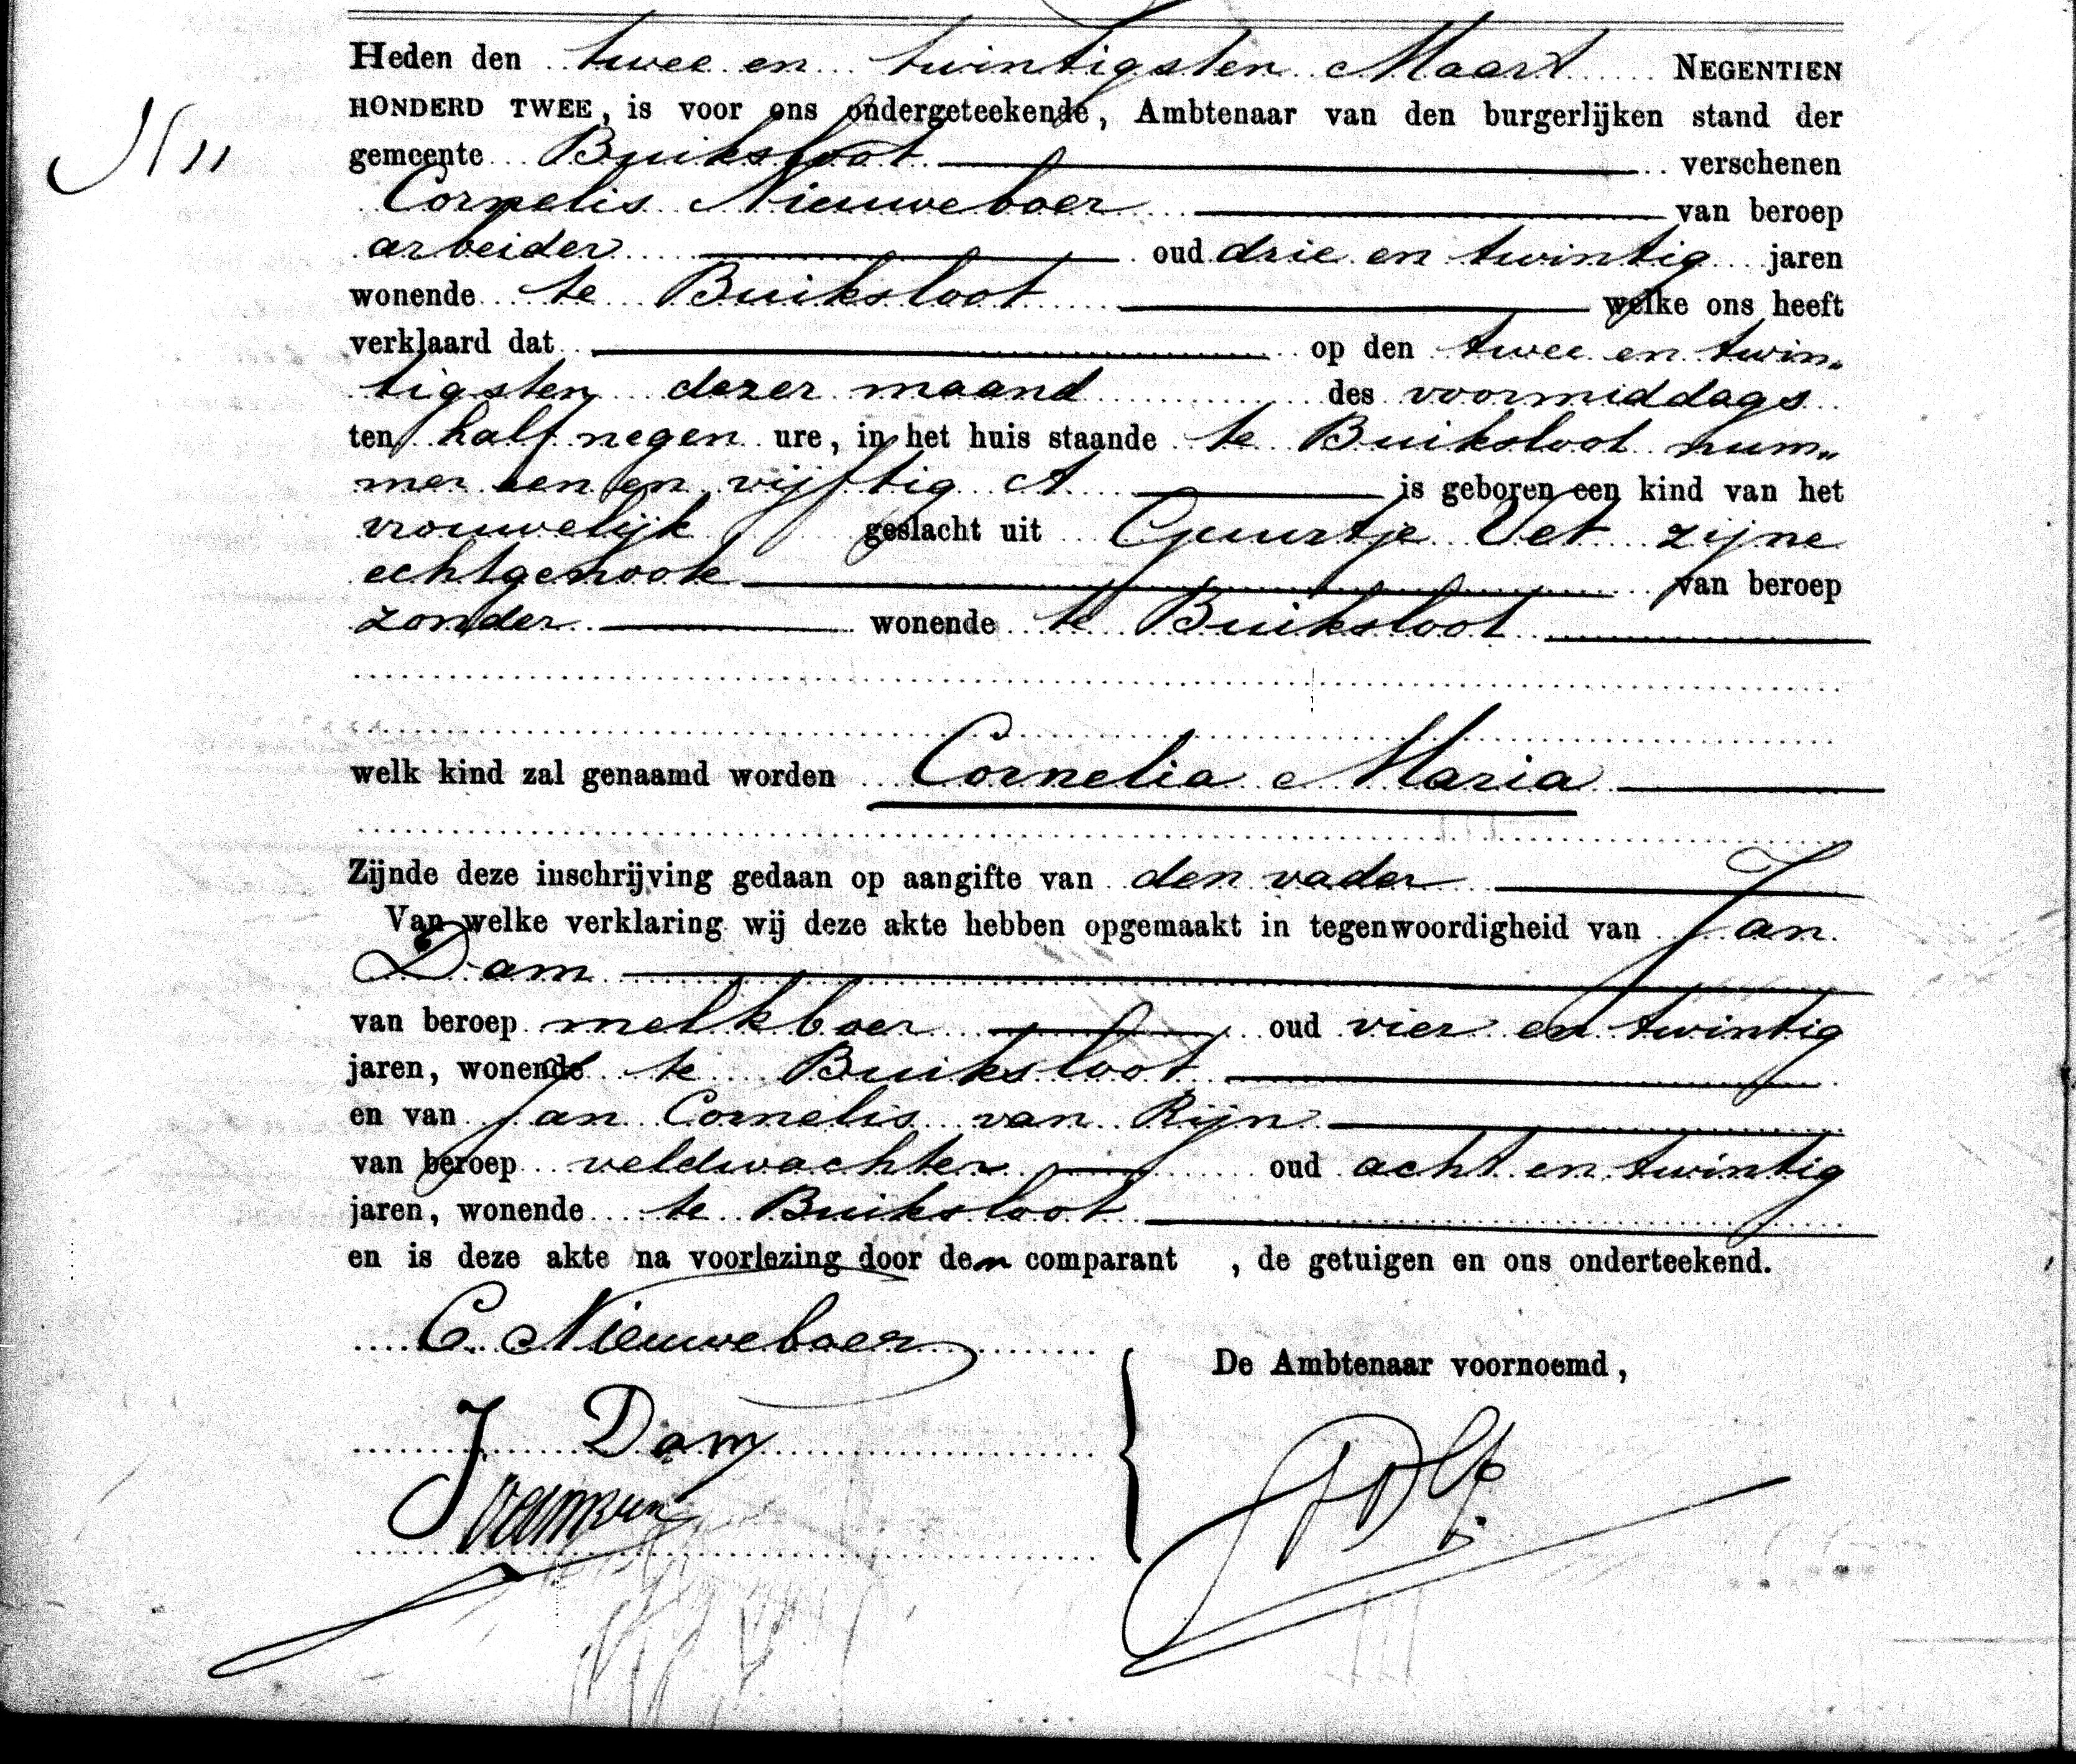 Heden den twee en twintigsten Maart NEGENTIEN
HONDERD TWEE, is voor ons ondergeteekende, Ambtenaar van den burgerlijken stand der
gemeente Buiksloot verschenen
Cornelis Nieuweboer van beroep
arbeider oud drie en twintig jaren
wonende te Buiksloot welke ons heeft
verklaard dat op den twee en twin„
tigsten dezer maand des voormiddags
ten half negen ure, in het huis staande te Buiksloot num„
mer een en vijftig A is geboren een kind van het
vrouwelijk geslacht uit Guurtje Vet zijne
echtgenoote van beroep
zonder wonende te Buiksloot
welk kind zal genaamd worden Cornelia Maria
Zijnde deze inschrijving gedaan op aangifte van den vader
Van welke verklaring wij deze akte hebben opgemaakt in tegenwoordigheid van Jan
Dam
van beroep melkboer oud vier en twintig
jaren, wonende te Buiksloot
en van Jan Cornelis van Rijn
van beroep veldwachter oud acht en twintig
jaren, wonende te Buiksloot
en is deze akte na voorlezing door den comparant , de getuigen en ons onderteekend.
C. Nieuweboer
De Ambtenaar voornoemd,
J Dam